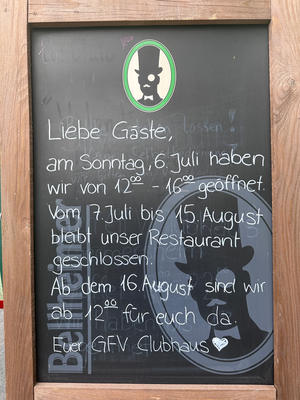 Liebe Gäste,
am Sonntag, 6. Juli haben
wir von 12⁰⁰ - 16⁰⁰ geöffnet.
Vom 7. Juli bis 15. August
bleibt unser Restaurant
geschlossen.
Ab dem 16. August sind wir
ab 12⁰⁰ für euch da.
Euer GFV Clubhaus
Bellheimer